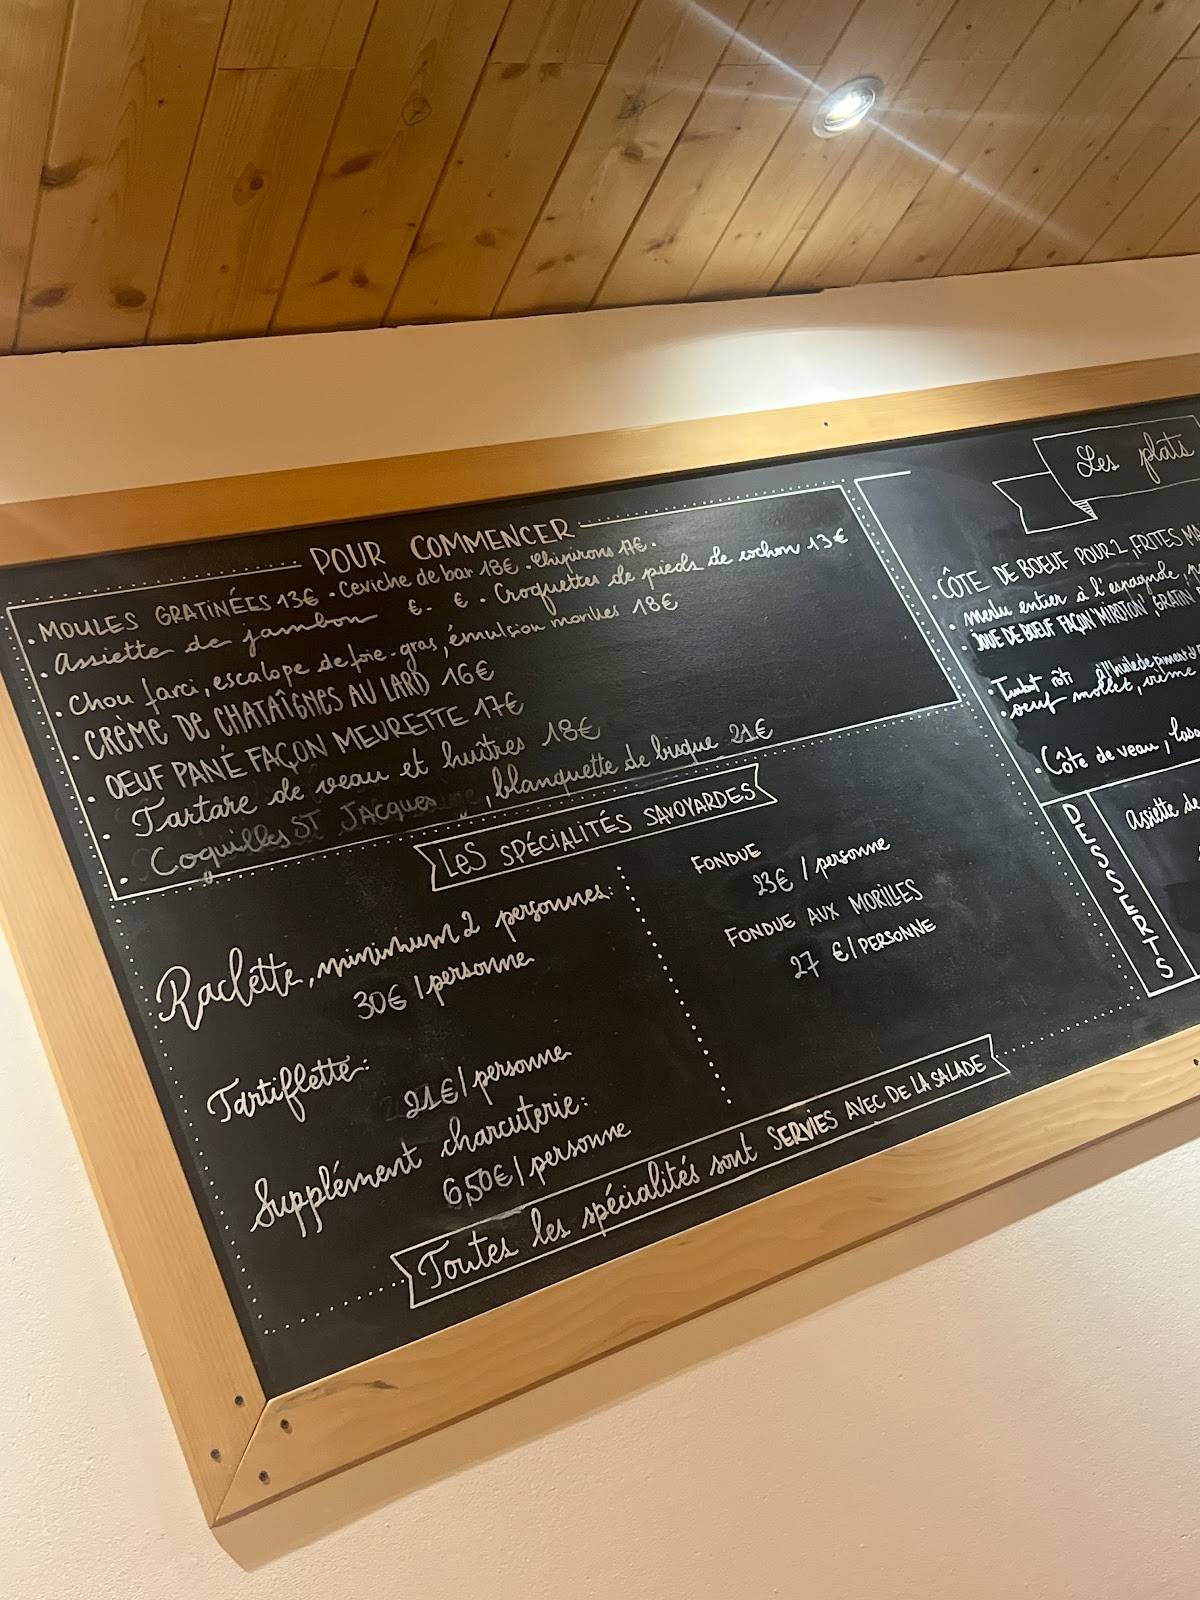 POUR COMMENCER
• MOULES GRATINÉES 13€ • Ceviche de bar 18€ • Chipirons 17€ •
• Assiette de jambon € - € • Croquettes de pieds de cochon 13€
• Chou farci, escalope de foie-gras, émulsion morilles 18€
• CRÈME DE CHATAÎGNES AU LARD 16€
• OEUF PANÉ FAÇON MEURETTE 17€
• Tartare de veau et huîtres 18€
• Coquilles ST JACques, blanquette de bisque 21€
LeS SPÉCIALITÉS SAVOYARDES
Raclette, minimum 2 personnes:
30€ / personne
Tartiflette:
21€ / personne
Supplément charcuterie:
6,50€ / personne
FONDUE
23€ / personne
FONDUE AUX MORILLES
27 €/ PERSONNE
Toutes les spécialités sont SERVIES AVEC DE LA SALADE
Les plats
• CÔTE DE BOEUF POUR 2, FRITES
• merlu entier à l'espagnole,
• JOUE DE BOEUF FAÇON 'MIROTON', GRATIN
• Turbot rôti à l'huile de piment
• oeuf mollet, crème
• Côte de veau,
DESSERTS
assiette de